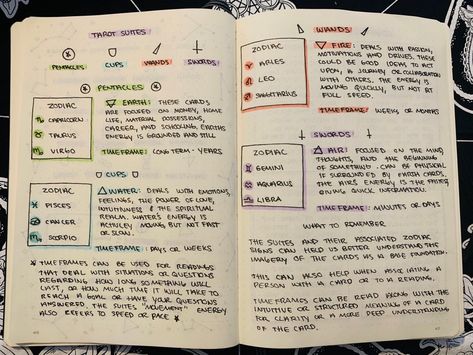 TAROT SUITES
PENTACLES CUPS WANDS SWORDS
PENTACLES
ZODIAC
CAPRICORN
TAURUS
VIRGO
EARTH: THESE CARDS
ARE FOCUSED ON MONEY, HOME
LIFE, MATERIAL POSSESSIONS,
CAREER, AND SCHOOLING. EARTHS
ENERGY IS GROUNDED AND STILL
TIMEFRAME: LONG TERM - YEARS
CUPS
ZODIAC
PISCES
CANCER
SCORPIO
WATER: DEALS WITH EMOTIONS,
FEELINGS, THE POWER OF LOVE,
INTUITIVENESS & THE SPIRITUAL
REALM. WATER'S ENERGY IS
ACTIVLEY MOVING BUT NOT FAST
OR SLOW.
TIMEFRAME: DAYS OR WEEKS
* TIMEFRAMES CAN BE USED FOR READINGS
THAT DEAL WITH SITUATIONS OR QUESTIONS
REGARDING HOW LONG SOMETHING WILL
LAST, OR HOW MUCH TIME IT WILL TAKE TO
REACH A GOAL OR HAVE YOUR QUESTIONS
ANSWERED. THE SUITES "MOVEMENT" ENERGY
ALSO REFERS TO SPEED OR PACE *
WANDS
ZODIAC
ARIES
LEO
SAGITTARIUS
FIRE: DEALS WITH PASSION,
MOTIVATIONS AND DRIVES. THESE
COULD BE GOOD IDEAS TO ACT
UPON, A JOURNEY OR COLLABORATION
WITH OTHERS. THE ENERGY IS
MOVING QUICKLY, BUT NOT AT
FULL SPEED.
TIMEFRAME: WEEKS OR MONTHS
SWORDS
ZODIAC
GEMINI
AQUARIUS
LIBRA
AIR: FOCUSED ON THE MIND,
THOUGHTS, AND THE BEGINNING
OF SOMETHING. CAN BE PHYSICAL
IF SURROUNDED BY EARTH CARDS,
THE AIR'S ENERGY IS THE FASTEST
GIVING QUICK INFORMATION.
TIMEFRAME: MINUTES OR DAYS
WHAT TO REMEMBER
THE SUITES AND THEIR ASSOCIATED ZODIAC
SIGNS CAN HELP US BETTER UNDERSTAND THE
IMAGERY OF THE CARDS AS A BASE FOUNDATION.
THIS CAN ALSO HELP WHEN ASSOCIATING A
PERSON WITH A CARD OR TO A READING.
TIMEFRAMES CAN BE READ ALONG WITH THE
INTUITIVE OR STRUCTURED MEANING OF A CARD
FOR CLARITY OR A MORE DEEP UNDERSTANDING
OF THE CARD.